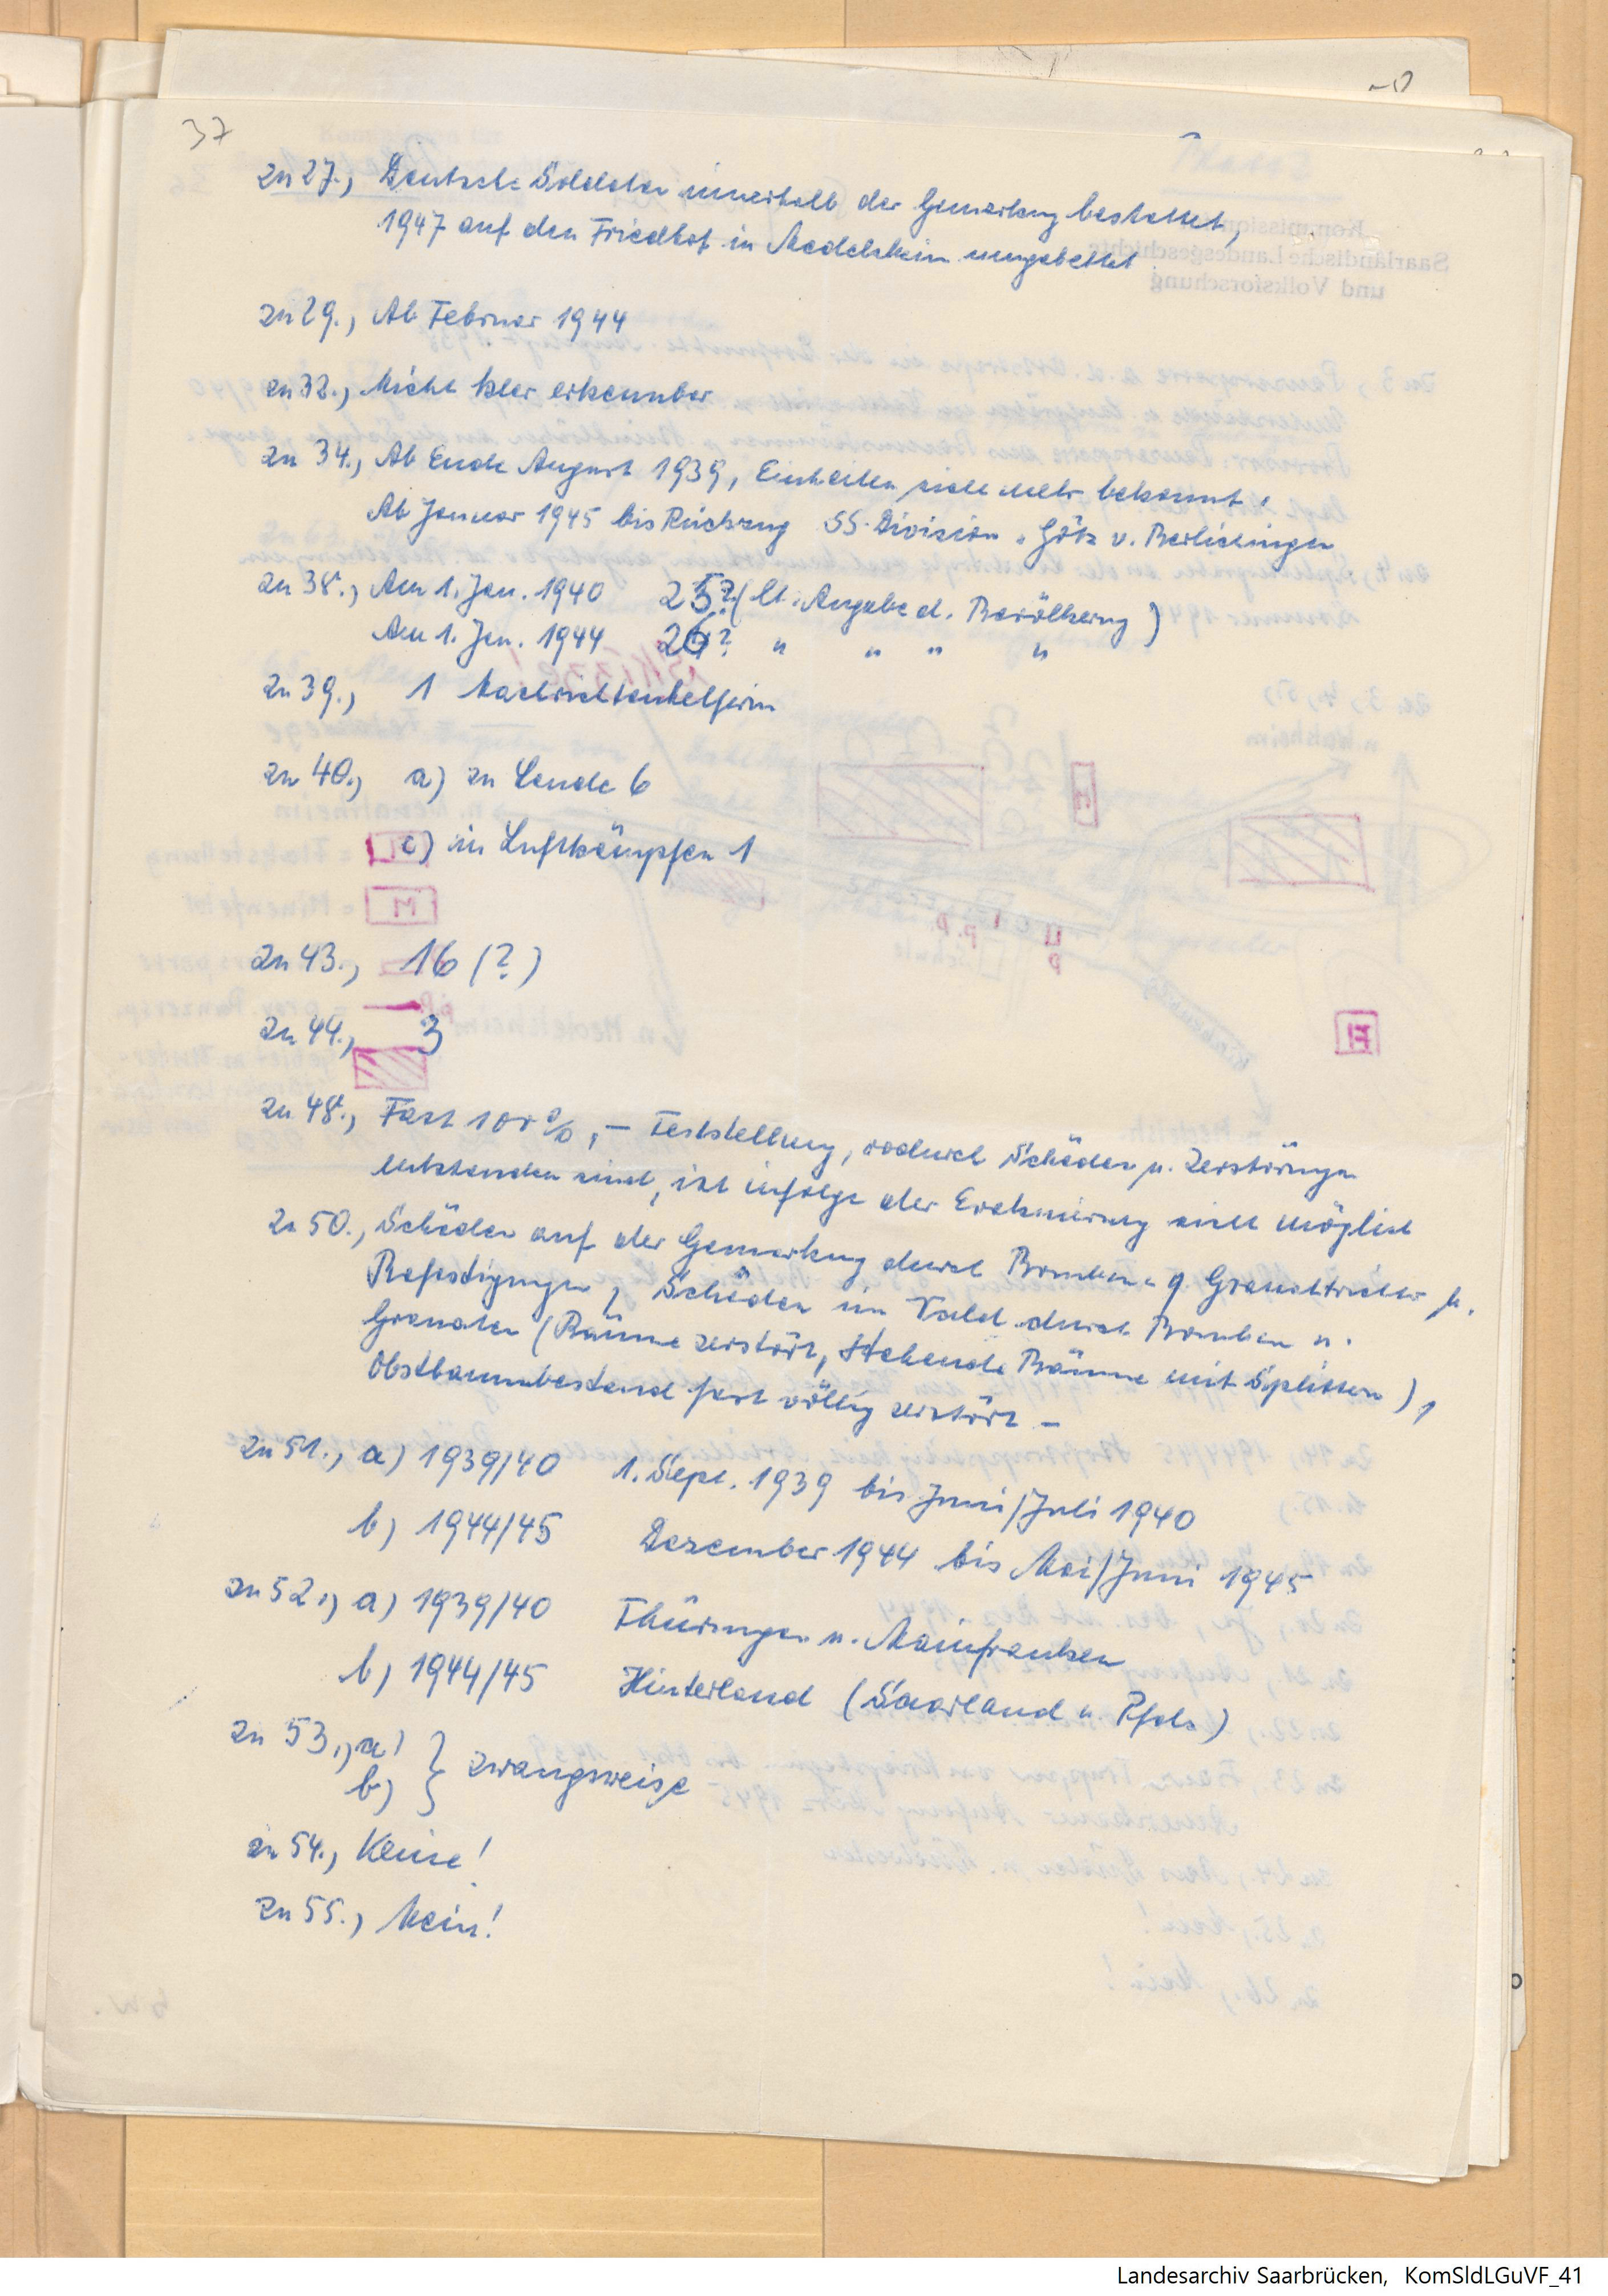 37
zu 27., Deutsche Soldaten innerhalb der Gemarkung bestattet,
1947 auf den Friedhof in Medelsheim umgebettet
zu 29., Ab Februar 1944
zu 32., Nicht klar erkennbar
zu 34., Ab Ende August 1939, Einheiten nicht mehr bekannt,
Ab Januar 1945 bis Rückzug SS-Division „Götz v. Berlichingen
zu 38., Am 1. Jan. 1940 25? (lt. Angabe d. Bevölkerung)
Am 1. Jan. 1944 26? " " " "
zu 39., 1 Nachrichtenhelferin
zu 40., a) zu Lande 6
c) in Luftkämpfen 1
zu 43., 16 (?)
zu 44., 3
zu 48., Fast 100%, – Feststellung, wodurch Schäden u. Zerstörungen
entstanden sind, ist infolge der Evakuierung nicht möglich
zu 50., Schäden auf der Gemarkung durch Bomben- u. Granattrichter u.
Befestigungen, Schäden im Wald durch Bomben u.
Granaten (Bäume zerstört, stehende Bäume mit Splittern),
Obstbaumbestand fast völlig zerstört –
zu 51., a) 1939/40 1. Sept. 1939 bis Juni/Juli 1940
b) 1944/45 Dezember 1944 bis Mai/Juni 1945
zu 52., a) 1939/40 Thüringen u. Mainfranken
b) 1944/45 Hinterland (Saarland u. Pfalz)
zu 53., a)
b) } zwangsweise
zu 54., Keine!
zu 55., Nein!
Landesarchiv Saarbrücken, KomSldLGuVF_41